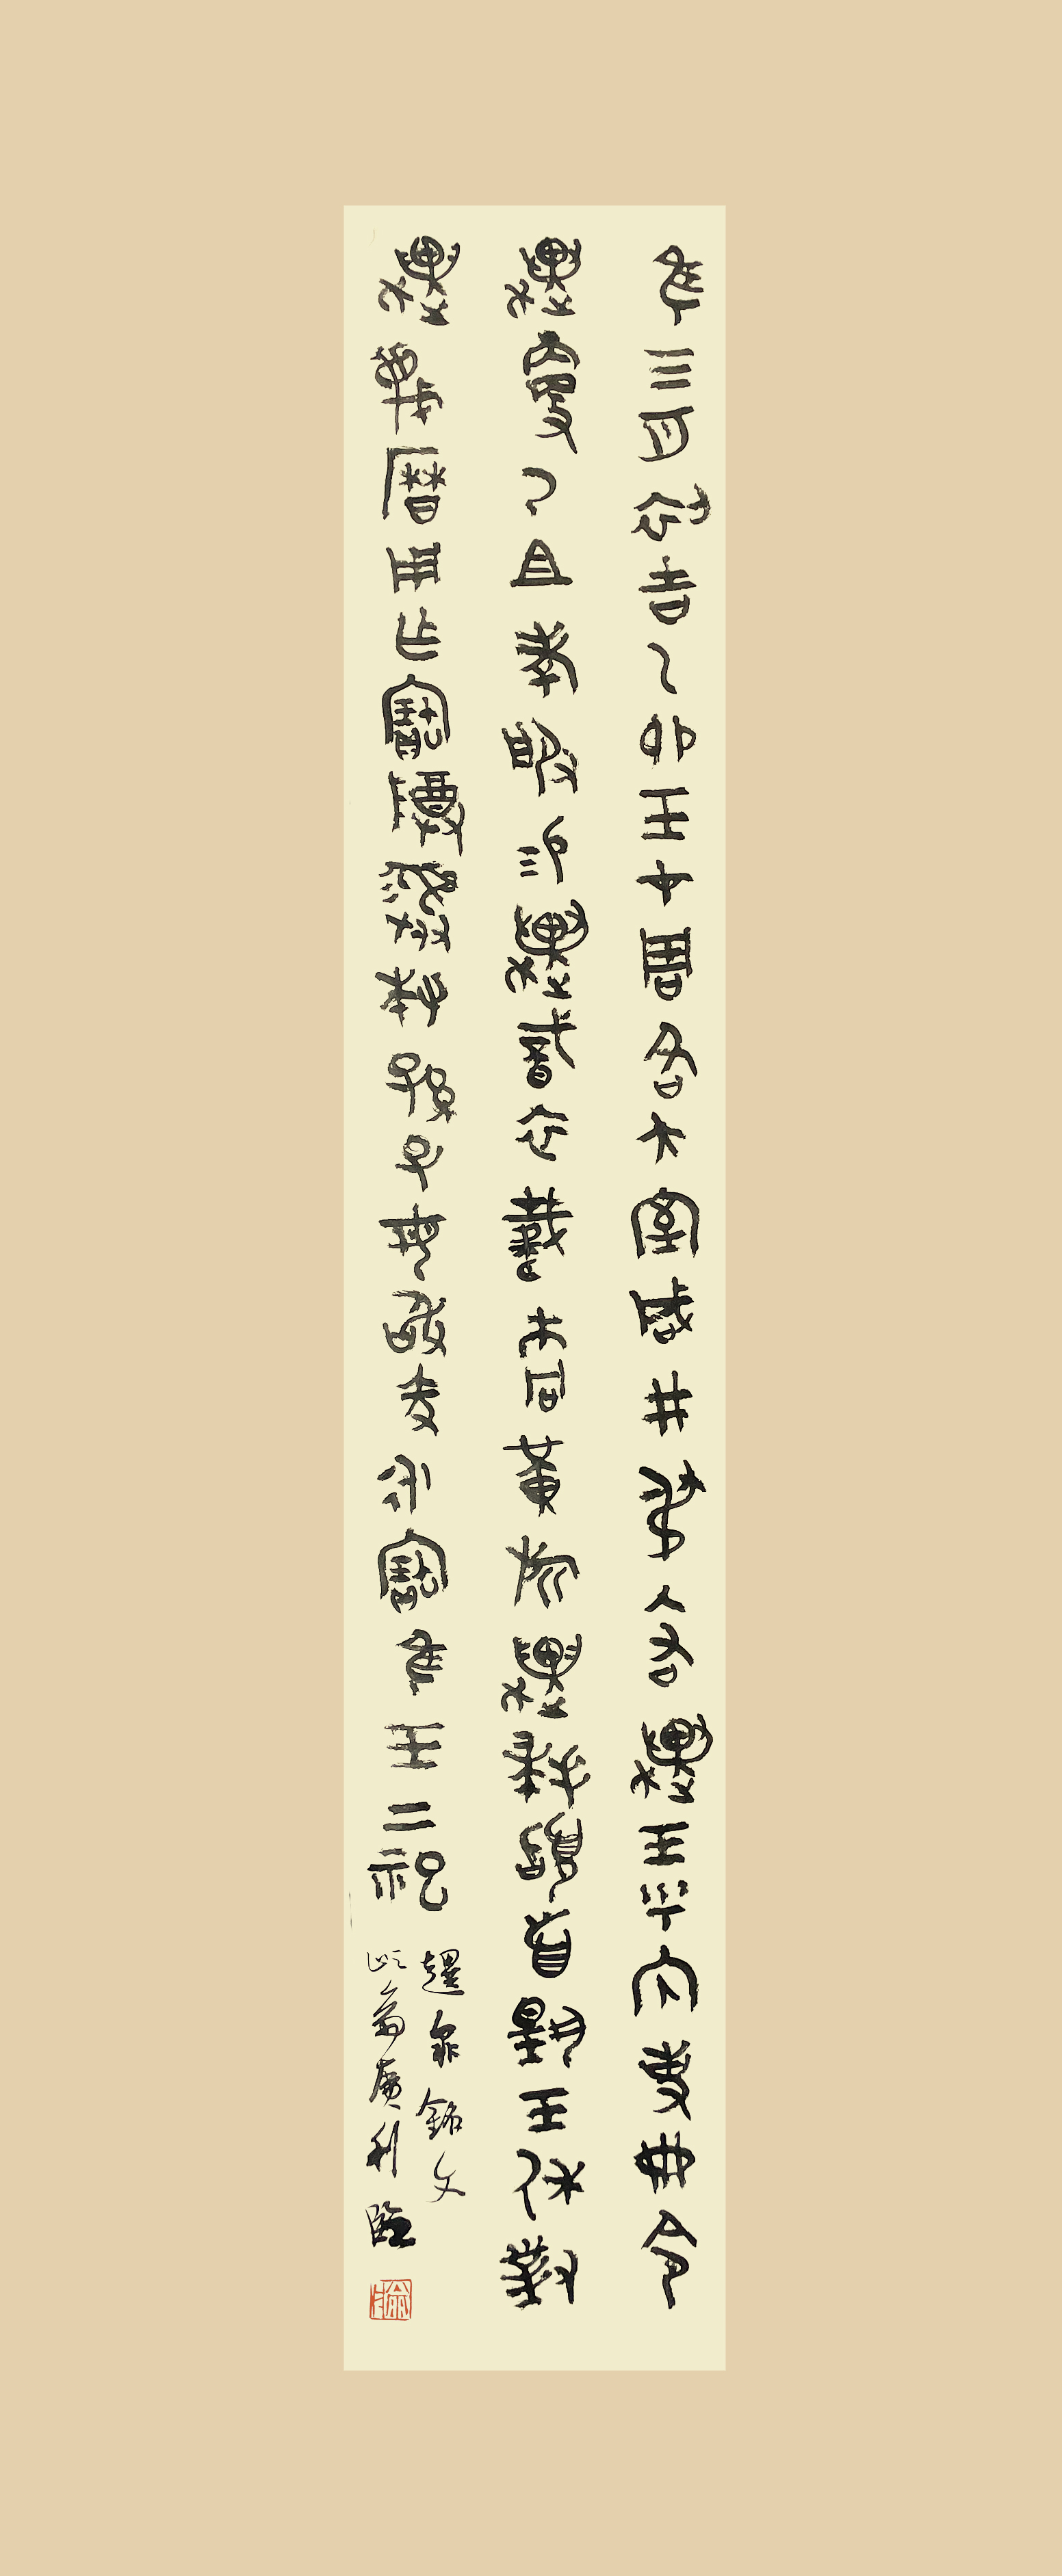 隹三月初吉乙卯王才周各大室咸井叔入右趩王乎内史冊令
趩更氒且考服易趩戠衣載巿冋黃旂趩拜𩒨首揚王休對
趩蔑曆用乍寶尊彝世孫子毋敢㒸永寶隹王二祀
趩銘文
翁廣利臨